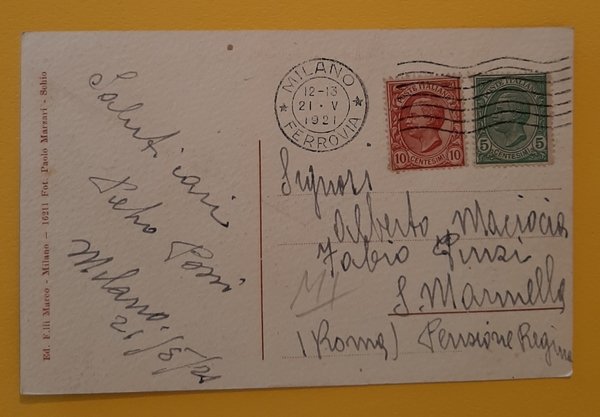 Ed. F.lli Marco - Milano - 16211 Fot. Paolo Marzari - Schio
Saluti cari
Pietro
Milano.
21/5/21
MILANO
12-13
21 · V
1921
FERROVIA
POSTE ITALIANE
10 CENTESIMI 10
POSTE ITALIANE
5 CENTESIMI 5
Signori
Alberto Maciocia
Fabio Pinzi
S. Marinella
(Roma) Pensione Regina